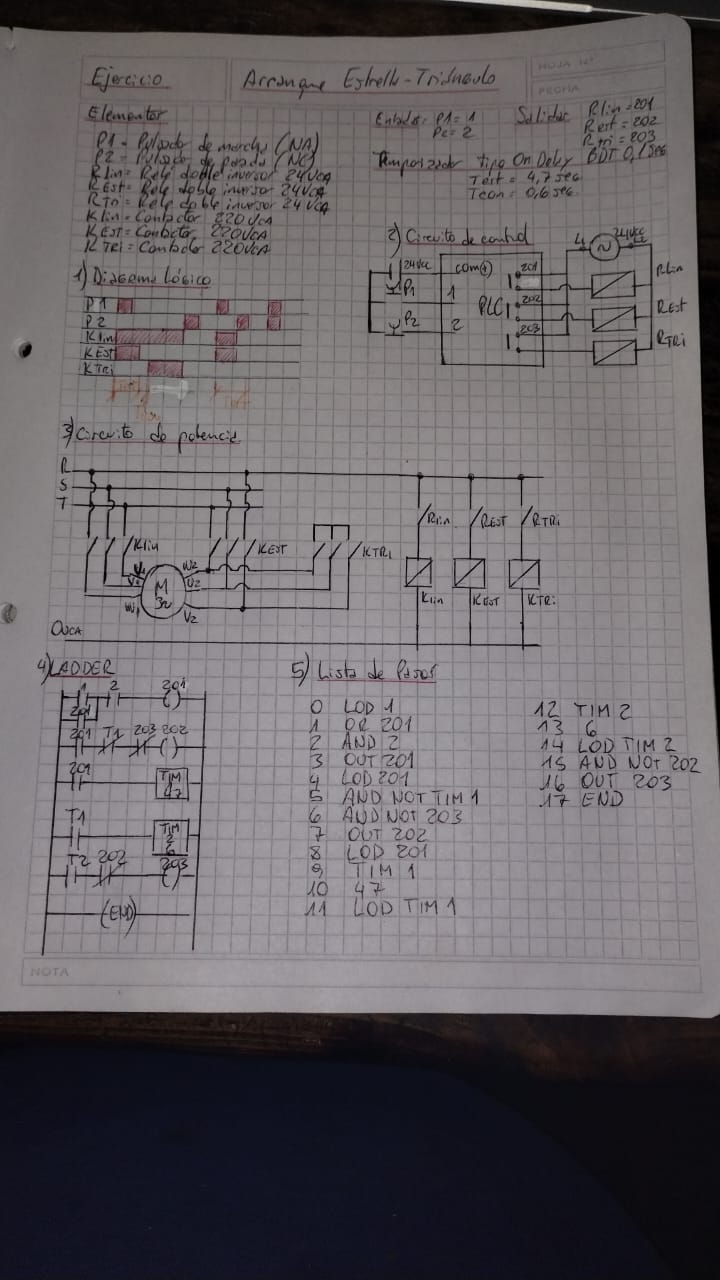 Ejercicio
Arranque Estrella-Triángulo
HOJA Nº
FECHA
Elementos
P1 = Pulsador de marcha (NA)
P2 = Pulsador de parada (NC)
RLin = Rele doble inversor 24VCA
REst = Rele doble inversor 24VCA
RTri = Rele doble inversor 24VCA
KLin = Contactor 220VCA
KEST = Contactor 220VCA
KTRi = Contactor 220VCA
Entradas: P1 = 1
= 2
Salidas RLin = 201
Rest = 202
RTri = 203
Temporizador tipo On Delay BDT 0,1 seg
Test = 4,7 seg
Tcon = 0,6 seg
1) Diagrama Lógico
P1
P2
KLin
KEST
KTRi
2) Circuito de control
24VCC
P1
P2
com(+)
1
2
PLC
201
202
203
RLin
REST
RTRi
3) Circuito de potencia
R
S
T
KLin
KEST
KTRi
M
3~
U1
V1
W1
W2
U2
V2
RLin
REST
RTRi
KLin
KEST
KTRi
0VCA
4) LADDER
1 2 201
201
201 T1 203 202
201 TIM
1
47
T1 TIM
2
6
T2 202 203
(END)
5) Lista de Pasos
0 LOD 1
1 OR 201
2 AND 2
3 OUT 201
4 LOD 201
5 AND NOT TIM 1
6 AND NOT 203
7 OUT 202
8 LOD 201
9 TIM 1
10 47
11 LOD TIM 1
12 TIM 2
13 6
14 LOD TIM 2
15 AND NOT 202
16 OUT 203
17 END
NOTA